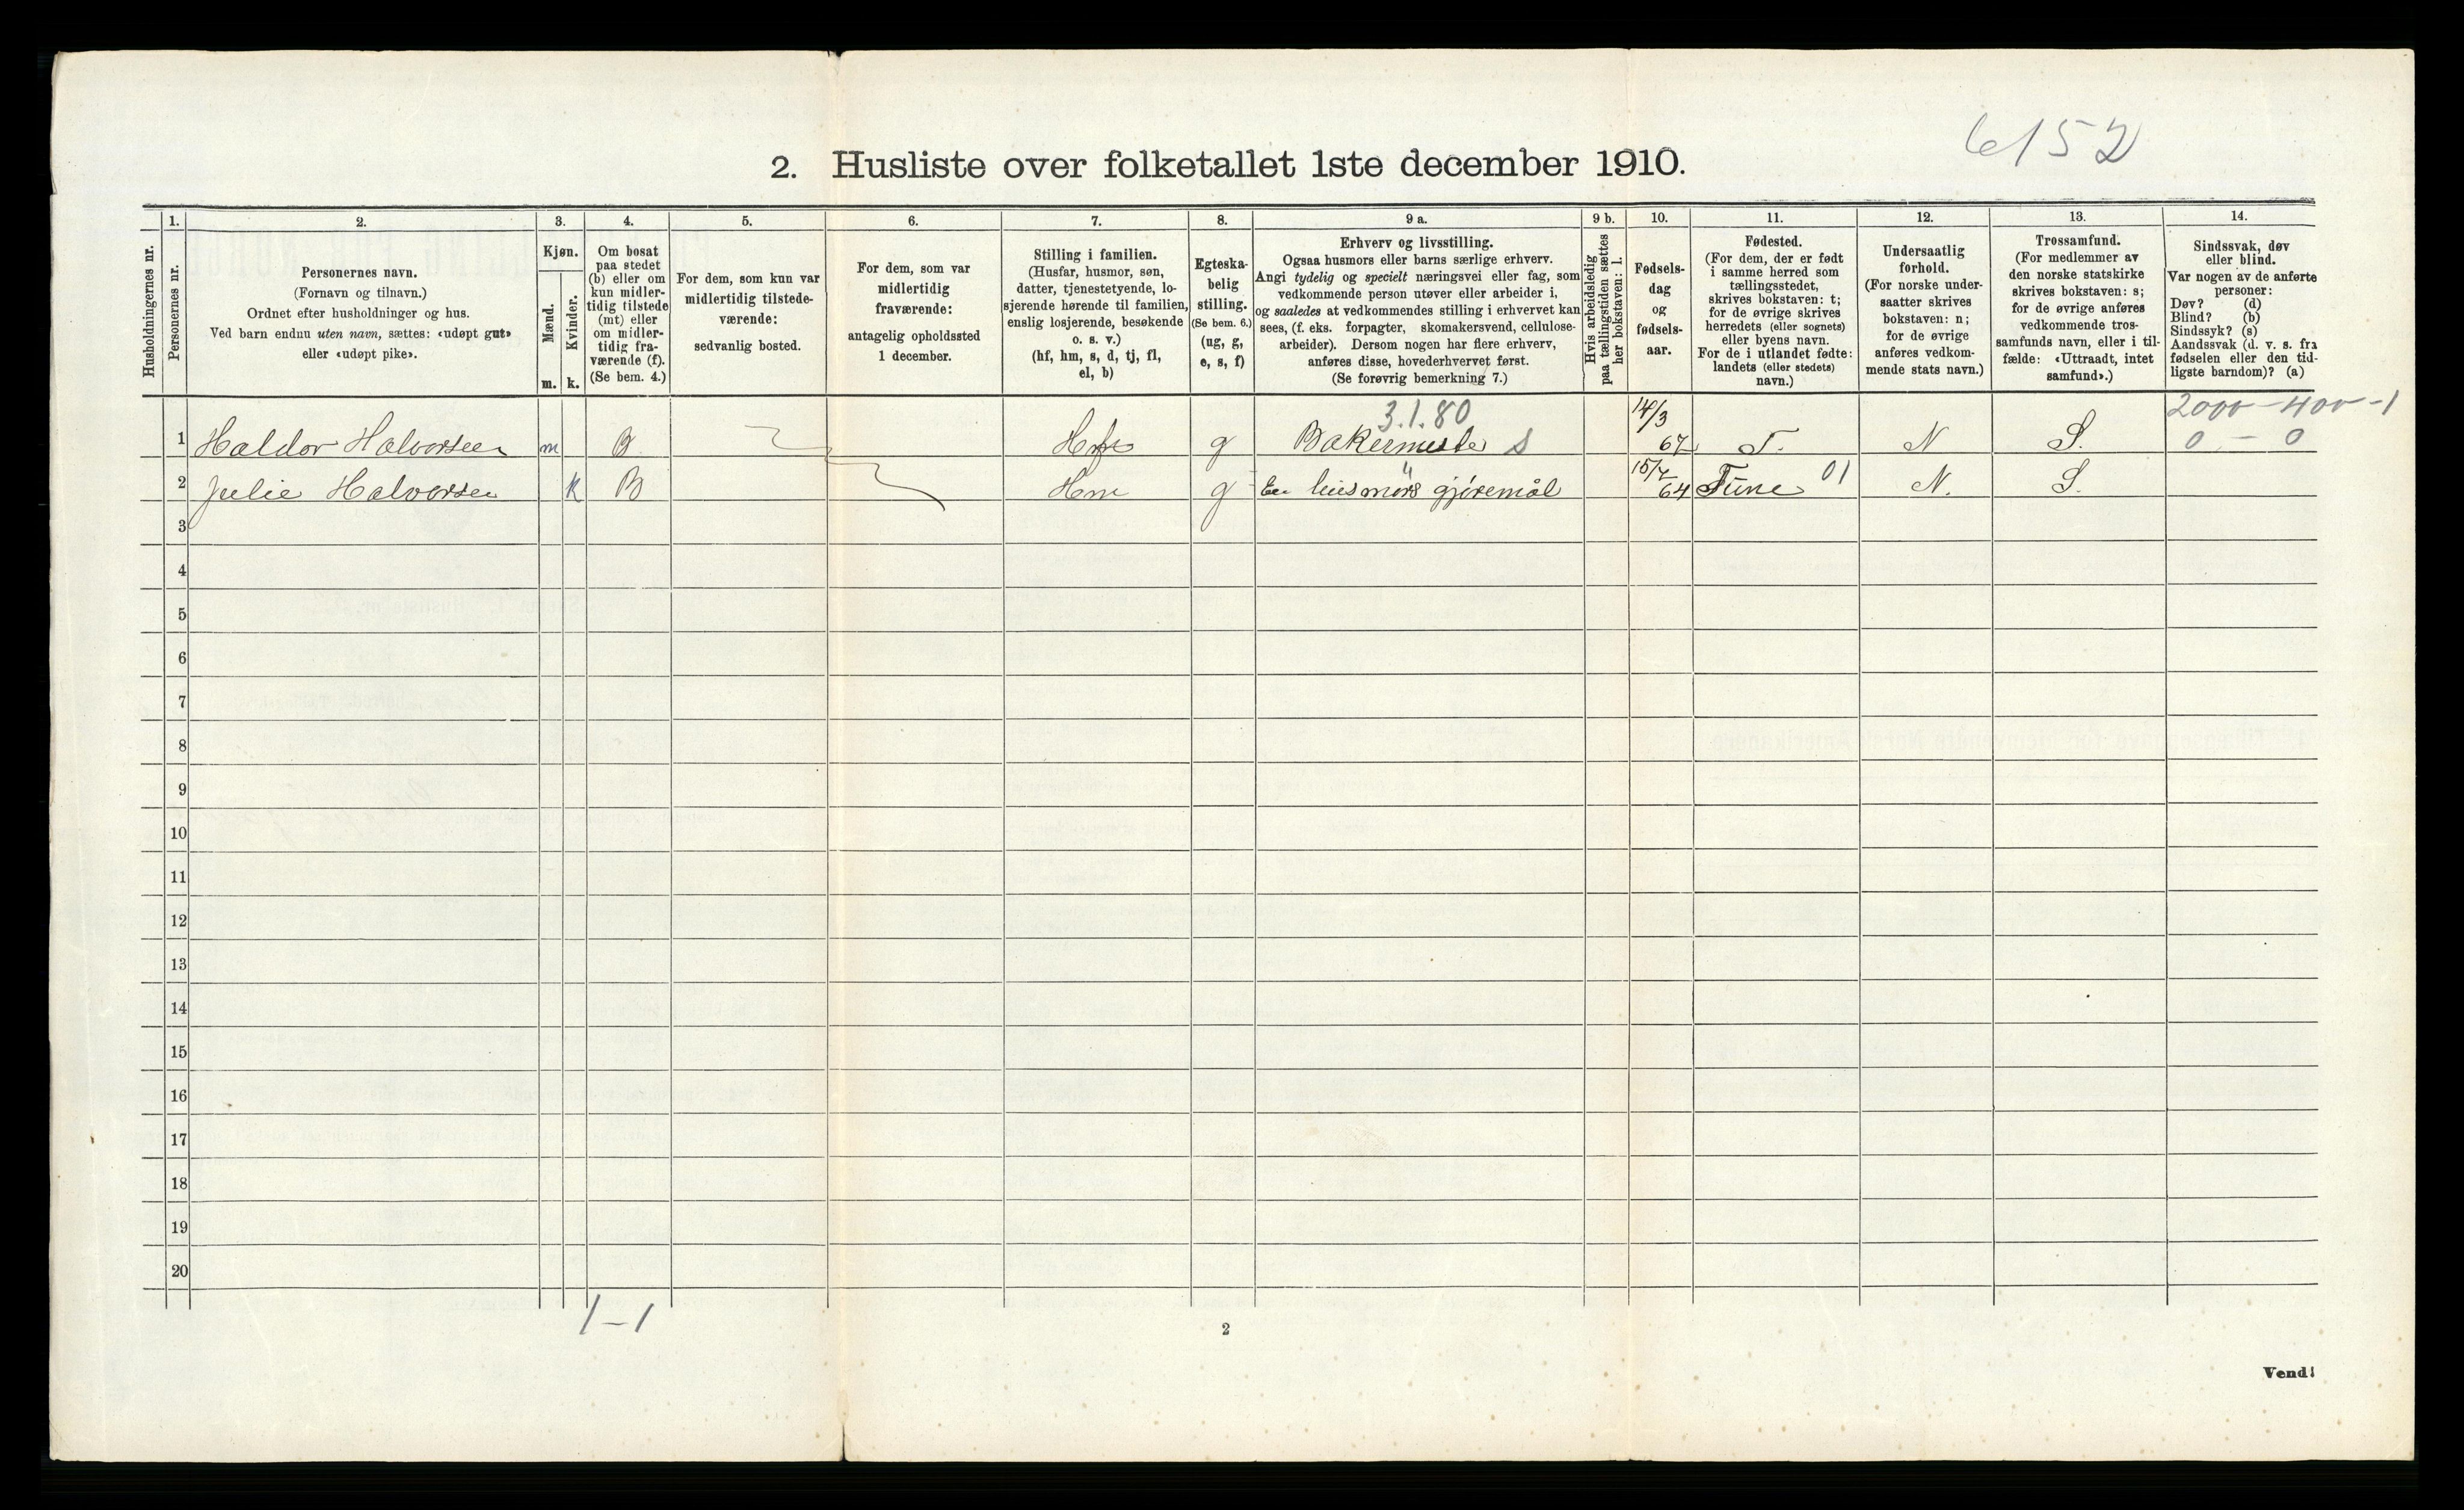 6152
2. Husliste over folketallet 1ste december 1910.
Husholdningernes nr.
1.
Personernes nr.
2.
Personernes navn.
(Fornavn og tilnavn.)
Ordnet efter husholdninger og hus.
Ved barn endnu uten navn, sættes: «udøpt gut»
eller «udøpt pike».
3.
Kjøn.
Mænd.
m.
Kvinder.
k.
4.
Om bosat
paa stedet
(b) eller om
kun midler-
tidig tilstede
(mt) eller
om midler-
tidig fra-
værende (f).
(Se bem. 4.)
5.
For dem, som kun var
midlertidig tilstede-
værende:
sedvanlig bosted.
6.
For dem, som var
midlertidig
fraværende:
antagelig opholdssted
1 december.
7.
Stilling i familien.
(Husfar, husmor, søn,
datter, tjenestetyende, lo-
sjerende hørende til familien,
enslig losjerende, besøkende
o. s. v.)
(hf, hm, s, d, tj, fl,
el, b)
8.
Egteska-
belig
stilling.
(Se bem. 6.)
(ug, g,
e, s, f)
9 a.
Erhverv og livsstilling.
Ogsaa husmors eller barns særlige erhverv.
Angi tydelig og specielt næringsvei eller fag, som
vedkommende person utøver eller arbeider i,
og saaledes at vedkommendes stilling i erhvervet kan
sees, (f. eks. forpagter, skomakersvend, cellulose-
arbeider). Dersom nogen har flere erhverv,
anføres disse, hovederhvervet først.
(Se forøvrig bemerkning 7.)
9 b.
Hvis arbeidsledig
paa tællingstiden sættes
her bokstaven: l.
10.
Fødsels-
dag
og
fødsels-
aar.
11.
Fødested.
(For dem, der er født
i samme herred som
tællingsstedet,
skrives bokstaven: t;
for de øvrige skrives
herredets (eller sognets)
eller byens navn.
For de i utlandet fødte:
landets (eller stedets)
navn.)
12.
Undersaatlig
forhold.
(For norske under-
saatter skrives
bokstaven: n;
for de øvrige
anføres vedkom-
mende stats navn.)
13.
Trossamfund.
(For medlemmer av
den norske statskirke
skrives bokstaven: s;
for de øvrige anføres
vedkommende tros-
samfunds navn, eller i til-
fælde: «Uttraadt, intet
samfund».)
14.
Sindssvak, døv
eller blind.
Var nogen av de anførte
personer:
Døv? (d)
Blind? (b)
Sindssyk? (s)
Aandssvak (d. v. s. fra
fødselen eller den tid-
ligste barndom)? (a)
3.1.80 14/3 2000-400-1
1 Haldor Halvorsen m B Hf g Bakermester S 67 T. N S. 0 - 0
2 Julie Halvorsen k B Hm g En husmörs gjöremål 15/7 64 Tune 01 N. S.
3
4
5
6
7
8
9
10
11
12
13
14
15
16
17
18
19
20
1-1
2
Vend!